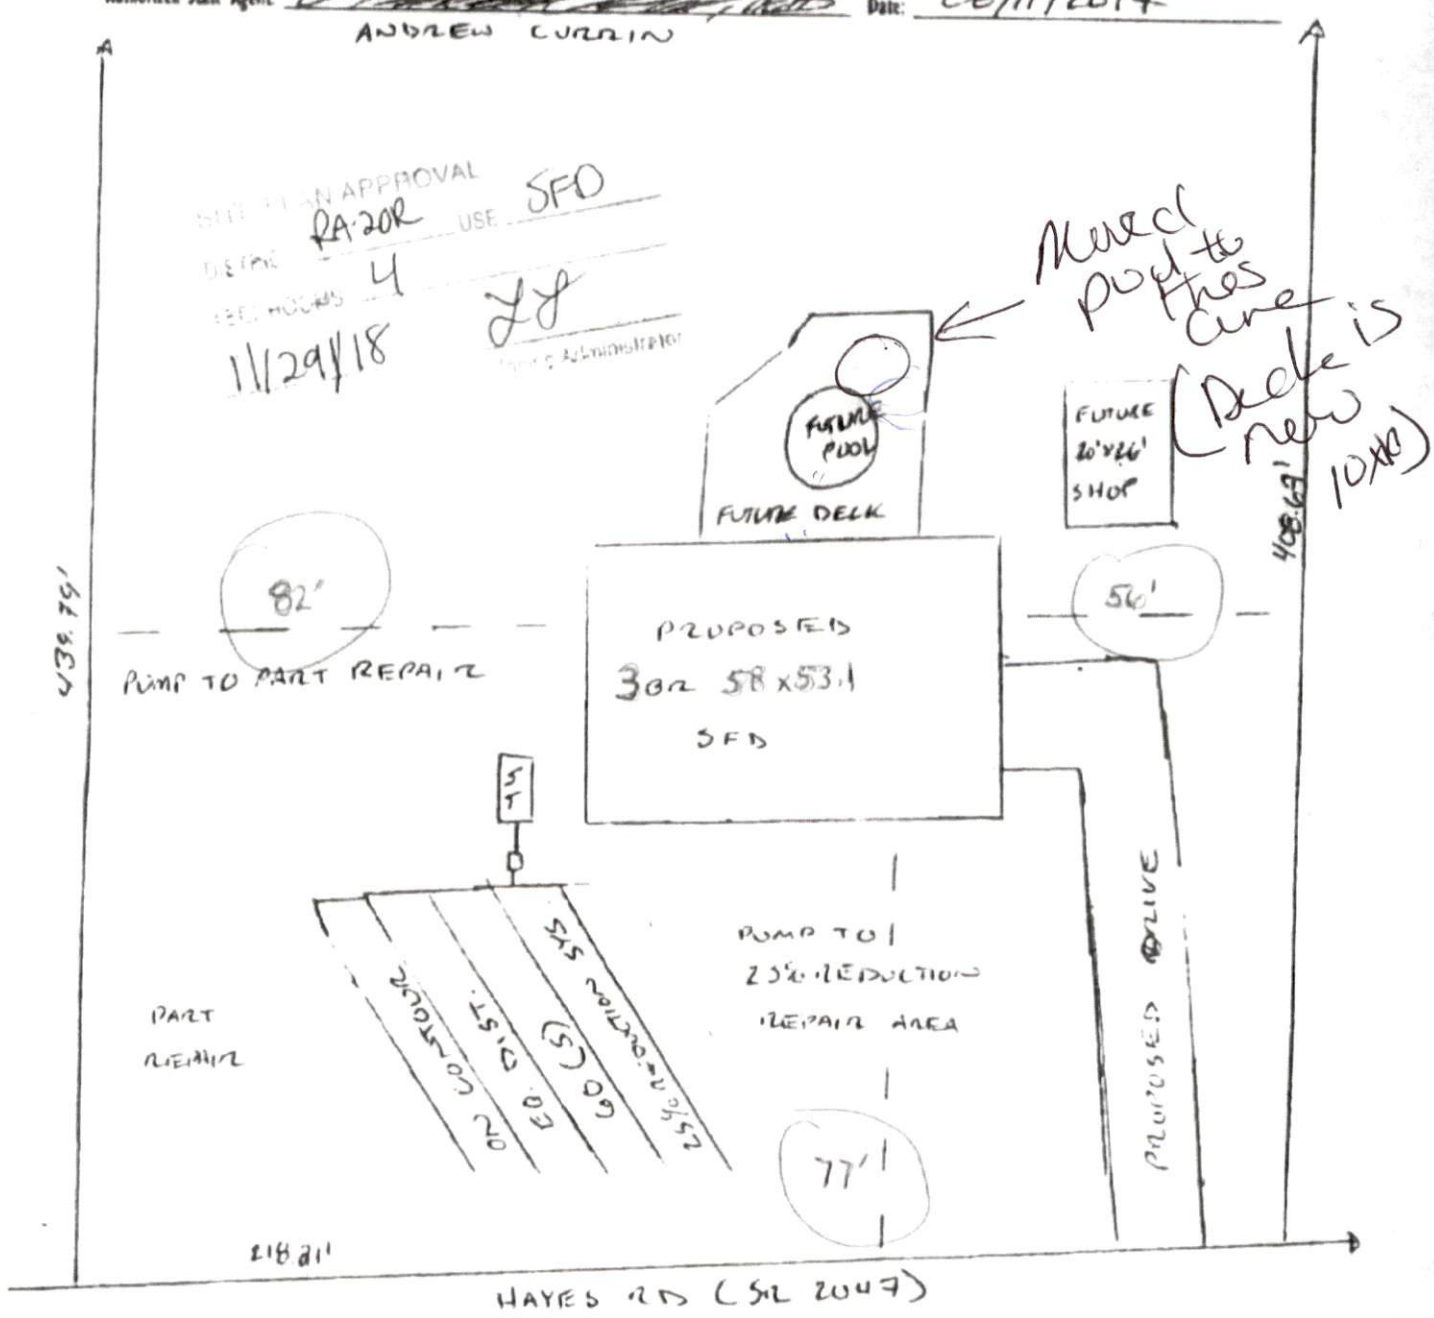 Date:
ANDREW CURRIN
SITE PLAN APPROVAL
DISTRICT RA-20R USE SFD
#BEDROOMS 4
11/29/18
Zoning Administrator
Moved
pool to
this
area
(Deck is
new
10x10)
FUTURE
POOL
FUTURE DECK
FUTURE
20'x26'
SHOP
408.69'
439.79'
82'
56'
PUMP TO PART REPAIR
PROPOSED
3BR 58x53.1
SFD
ST
PUMP TO
25% REDUCTION
REPAIR AREA
PART
REPAIR
ON CONTOUR
EQ. DIST.
60 (5)
25% REDUCTION SYS
PROPOSED DRIVE
77'
218.21'
HAYES RD (SR 2047)